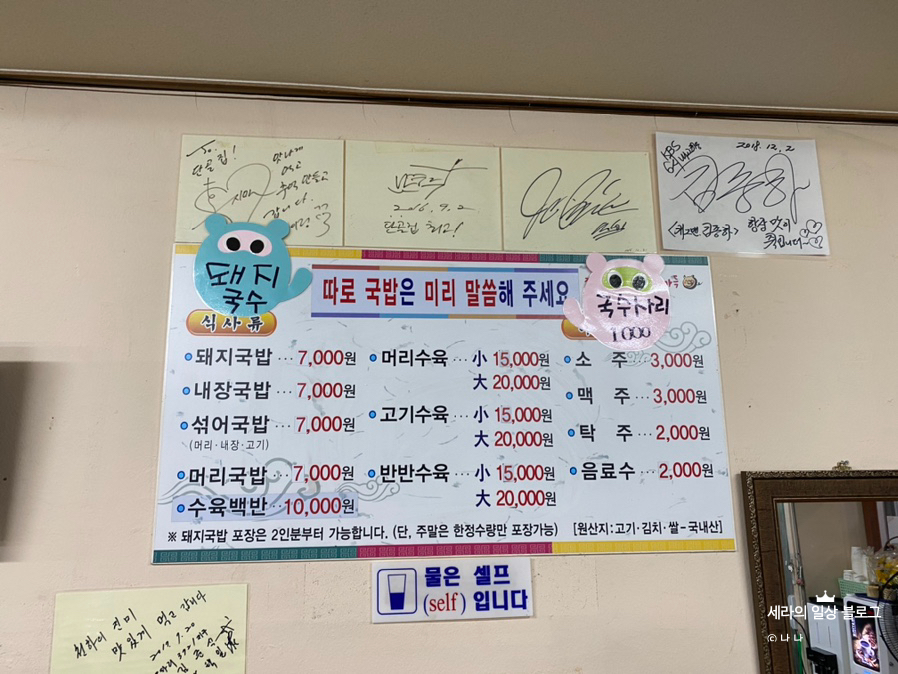 To.
단골집!
맛나게
먹고
추억 만들고
갑니다.
2016. 9. 2
단골집 최고!
KBS
2018. 12. 2
<개그맨 김종하>
돼지
국수
따로 국밥은 미리 말씀해 주세요
국수사리
1000
식사류
돼지국밥 ··· 7,000원
내장국밥 ··· 7,000원
섞어국밥 ··· 7,000원
(머리·내장·고기)
머리국밥 ··· 7,000원
수육백반 ·· 10,000원
머리수육 ··· 小 15,000원
大 20,000원
고기수육 ··· 小 15,000원
大 20,000원
반반수육 ··· 小 15,000원
大 20,000원
소 주 ··· 3,000원
맥 주 ··· 3,000원
탁 주 ··· 2,000원
음료수 ··· 2,000원
※ 돼지국밥 포장은 2인분부터 가능합니다. (단, 주말은 한정수량만 포장가능) [원산지:고기·김치·쌀-국내산]
물은 셀프
(self) 입니다
맛있게 먹고 갑니다
세라의 일상 블로그
© 나나